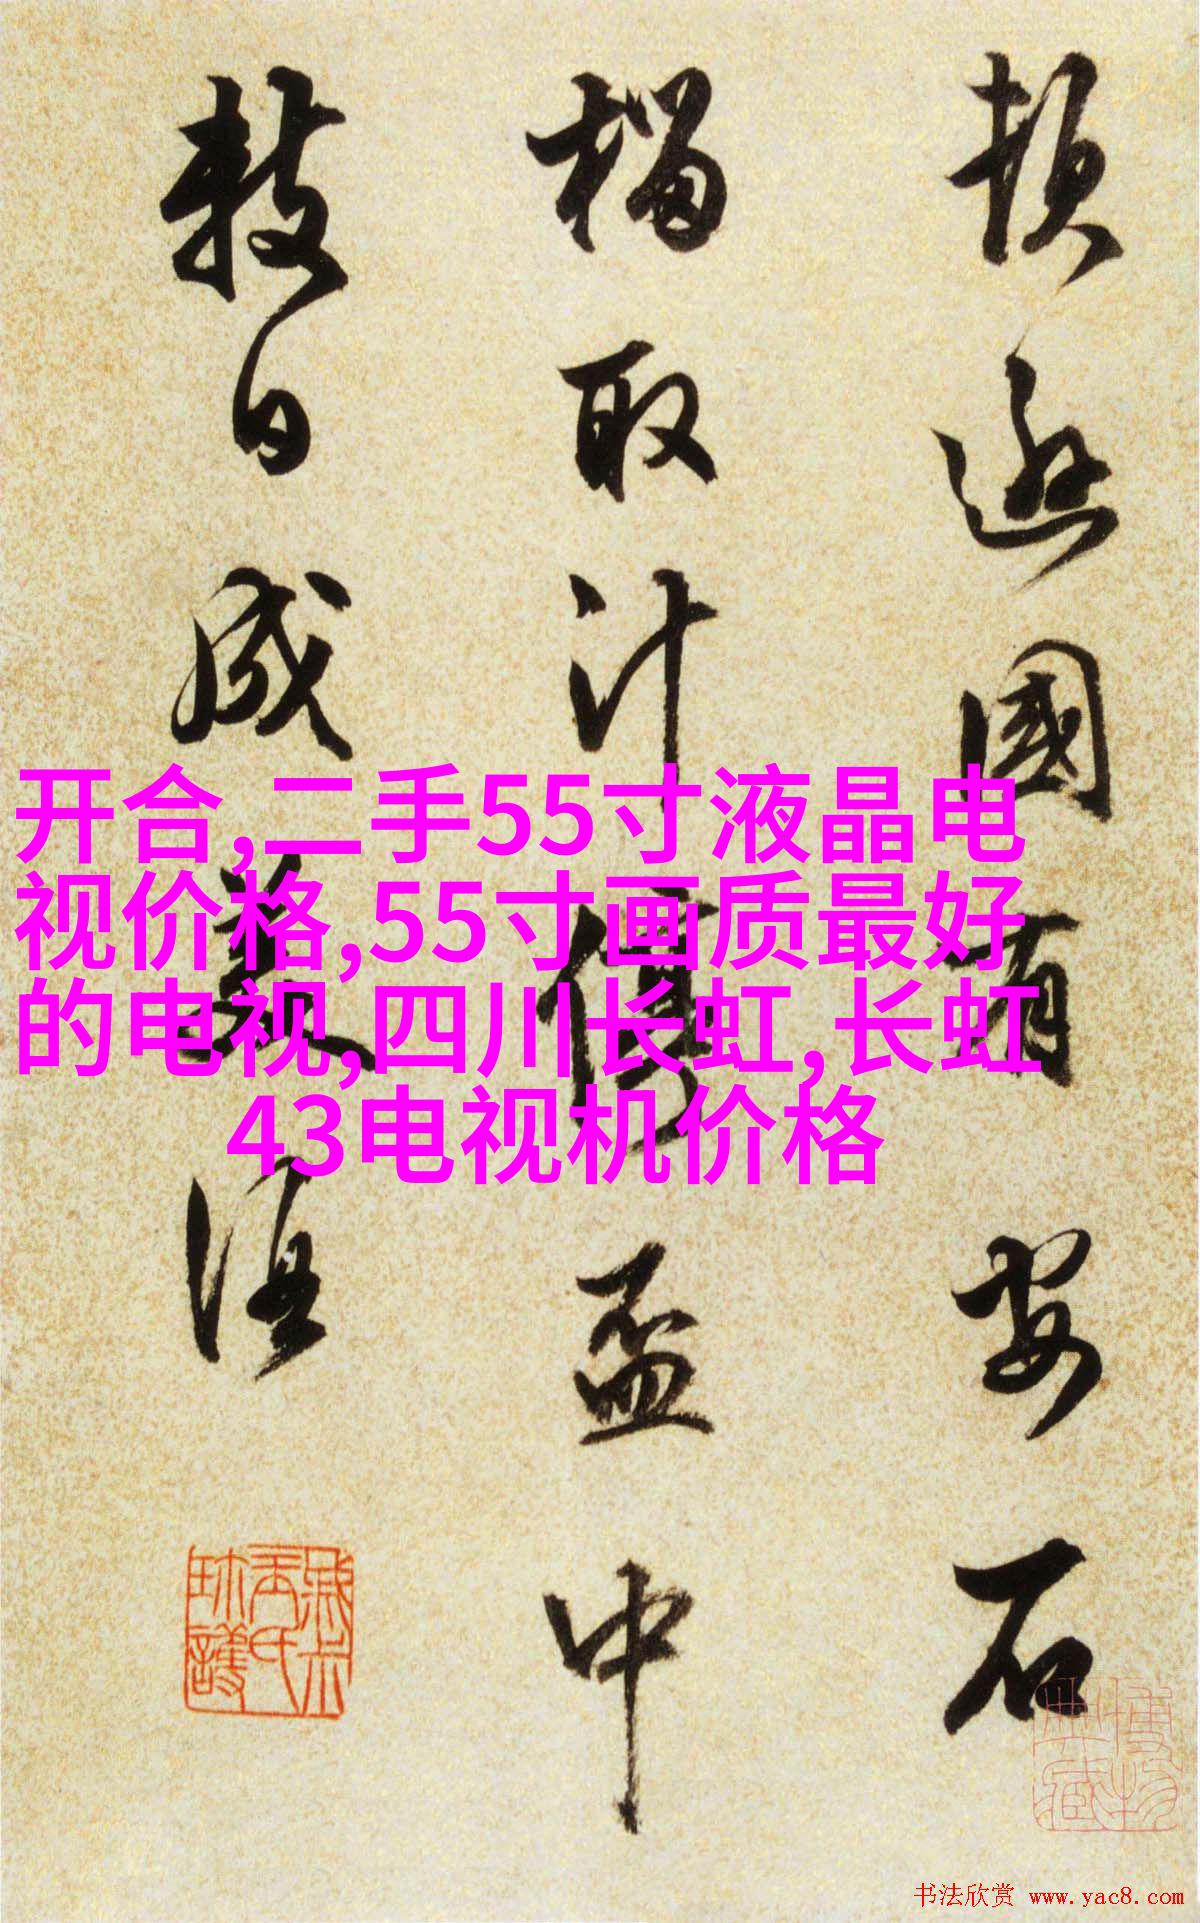 頓遜國有安石
榴取汁停盃中
數日成美酒
开合,二手55寸液晶电
视价格,55寸画质最好
的电视,四川长虹,长虹
43电视机价格
书法欣赏 www.yac8.com